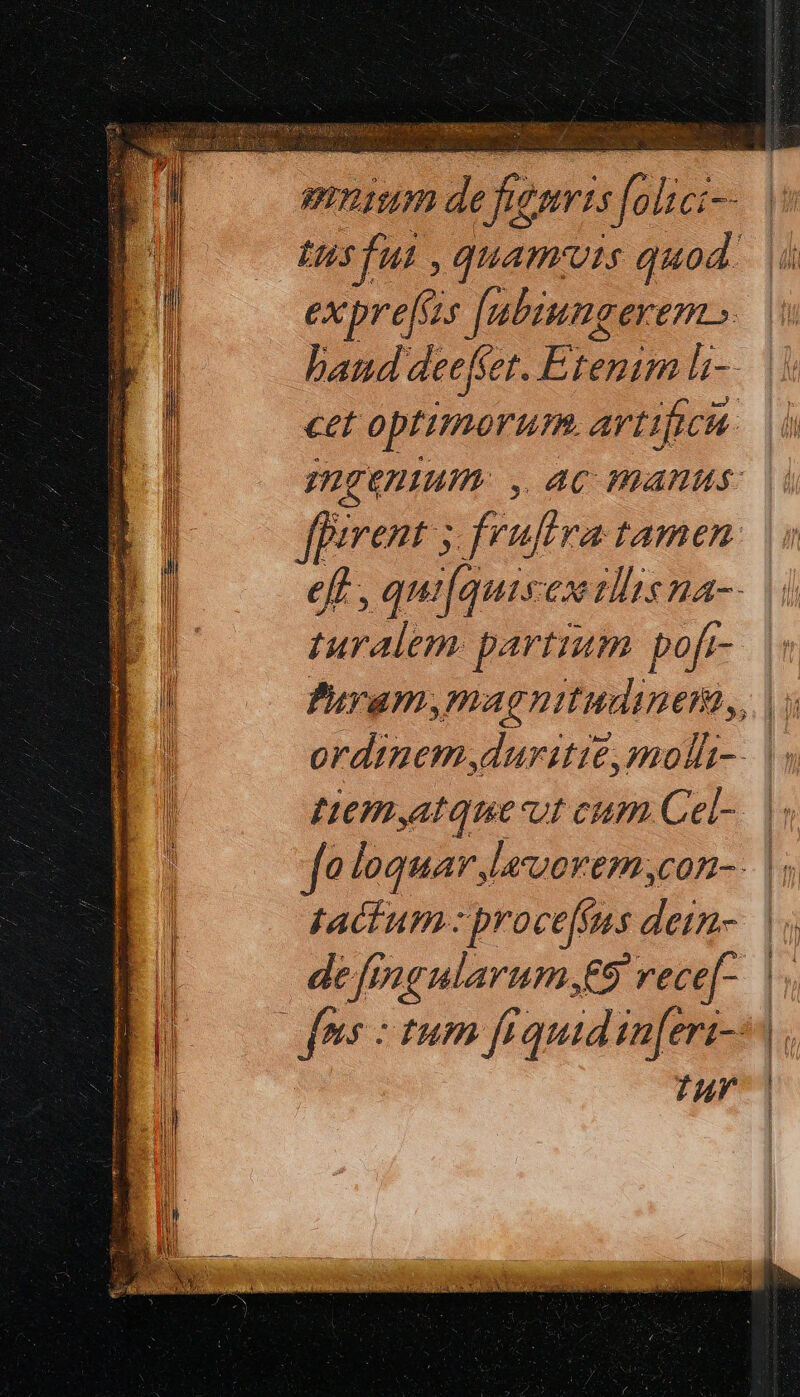 minium de figuris ſolici-
tus fui , quamvis quod
expreſſis ſubiungerem,
haud deeſſet. Etenim li-
cet optimorum artificũ
ingenium , ac manus
ſpirent ; fruſtra tamen
eſt , quiſquis ex illis na-
turalem partium poſi-
turam, magnitudinem,
ordinem, duritiẽ, molli-
tiem, atque vt cum Cel-
ſo loquar, lævorem, con-
tactum: proceſſus dein-
de ſingularum, & receſ-
ſus : tum ſi quid inſeri-
tur